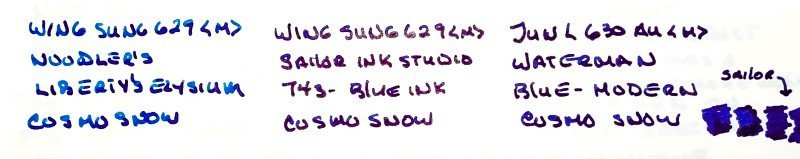 WING SUNG 629 <M>
NOODLER'S
LIBERTY'S ELYSIUM
COSMO SNOW
WING SUNG 629 <M>
SAILOR INK STUDIO
743- BLUE INK
COSMO SNOW
JUN L 630 AU <M>
WATERMAN
BLUE- MODERN
COSMO SNOW
SAILOR